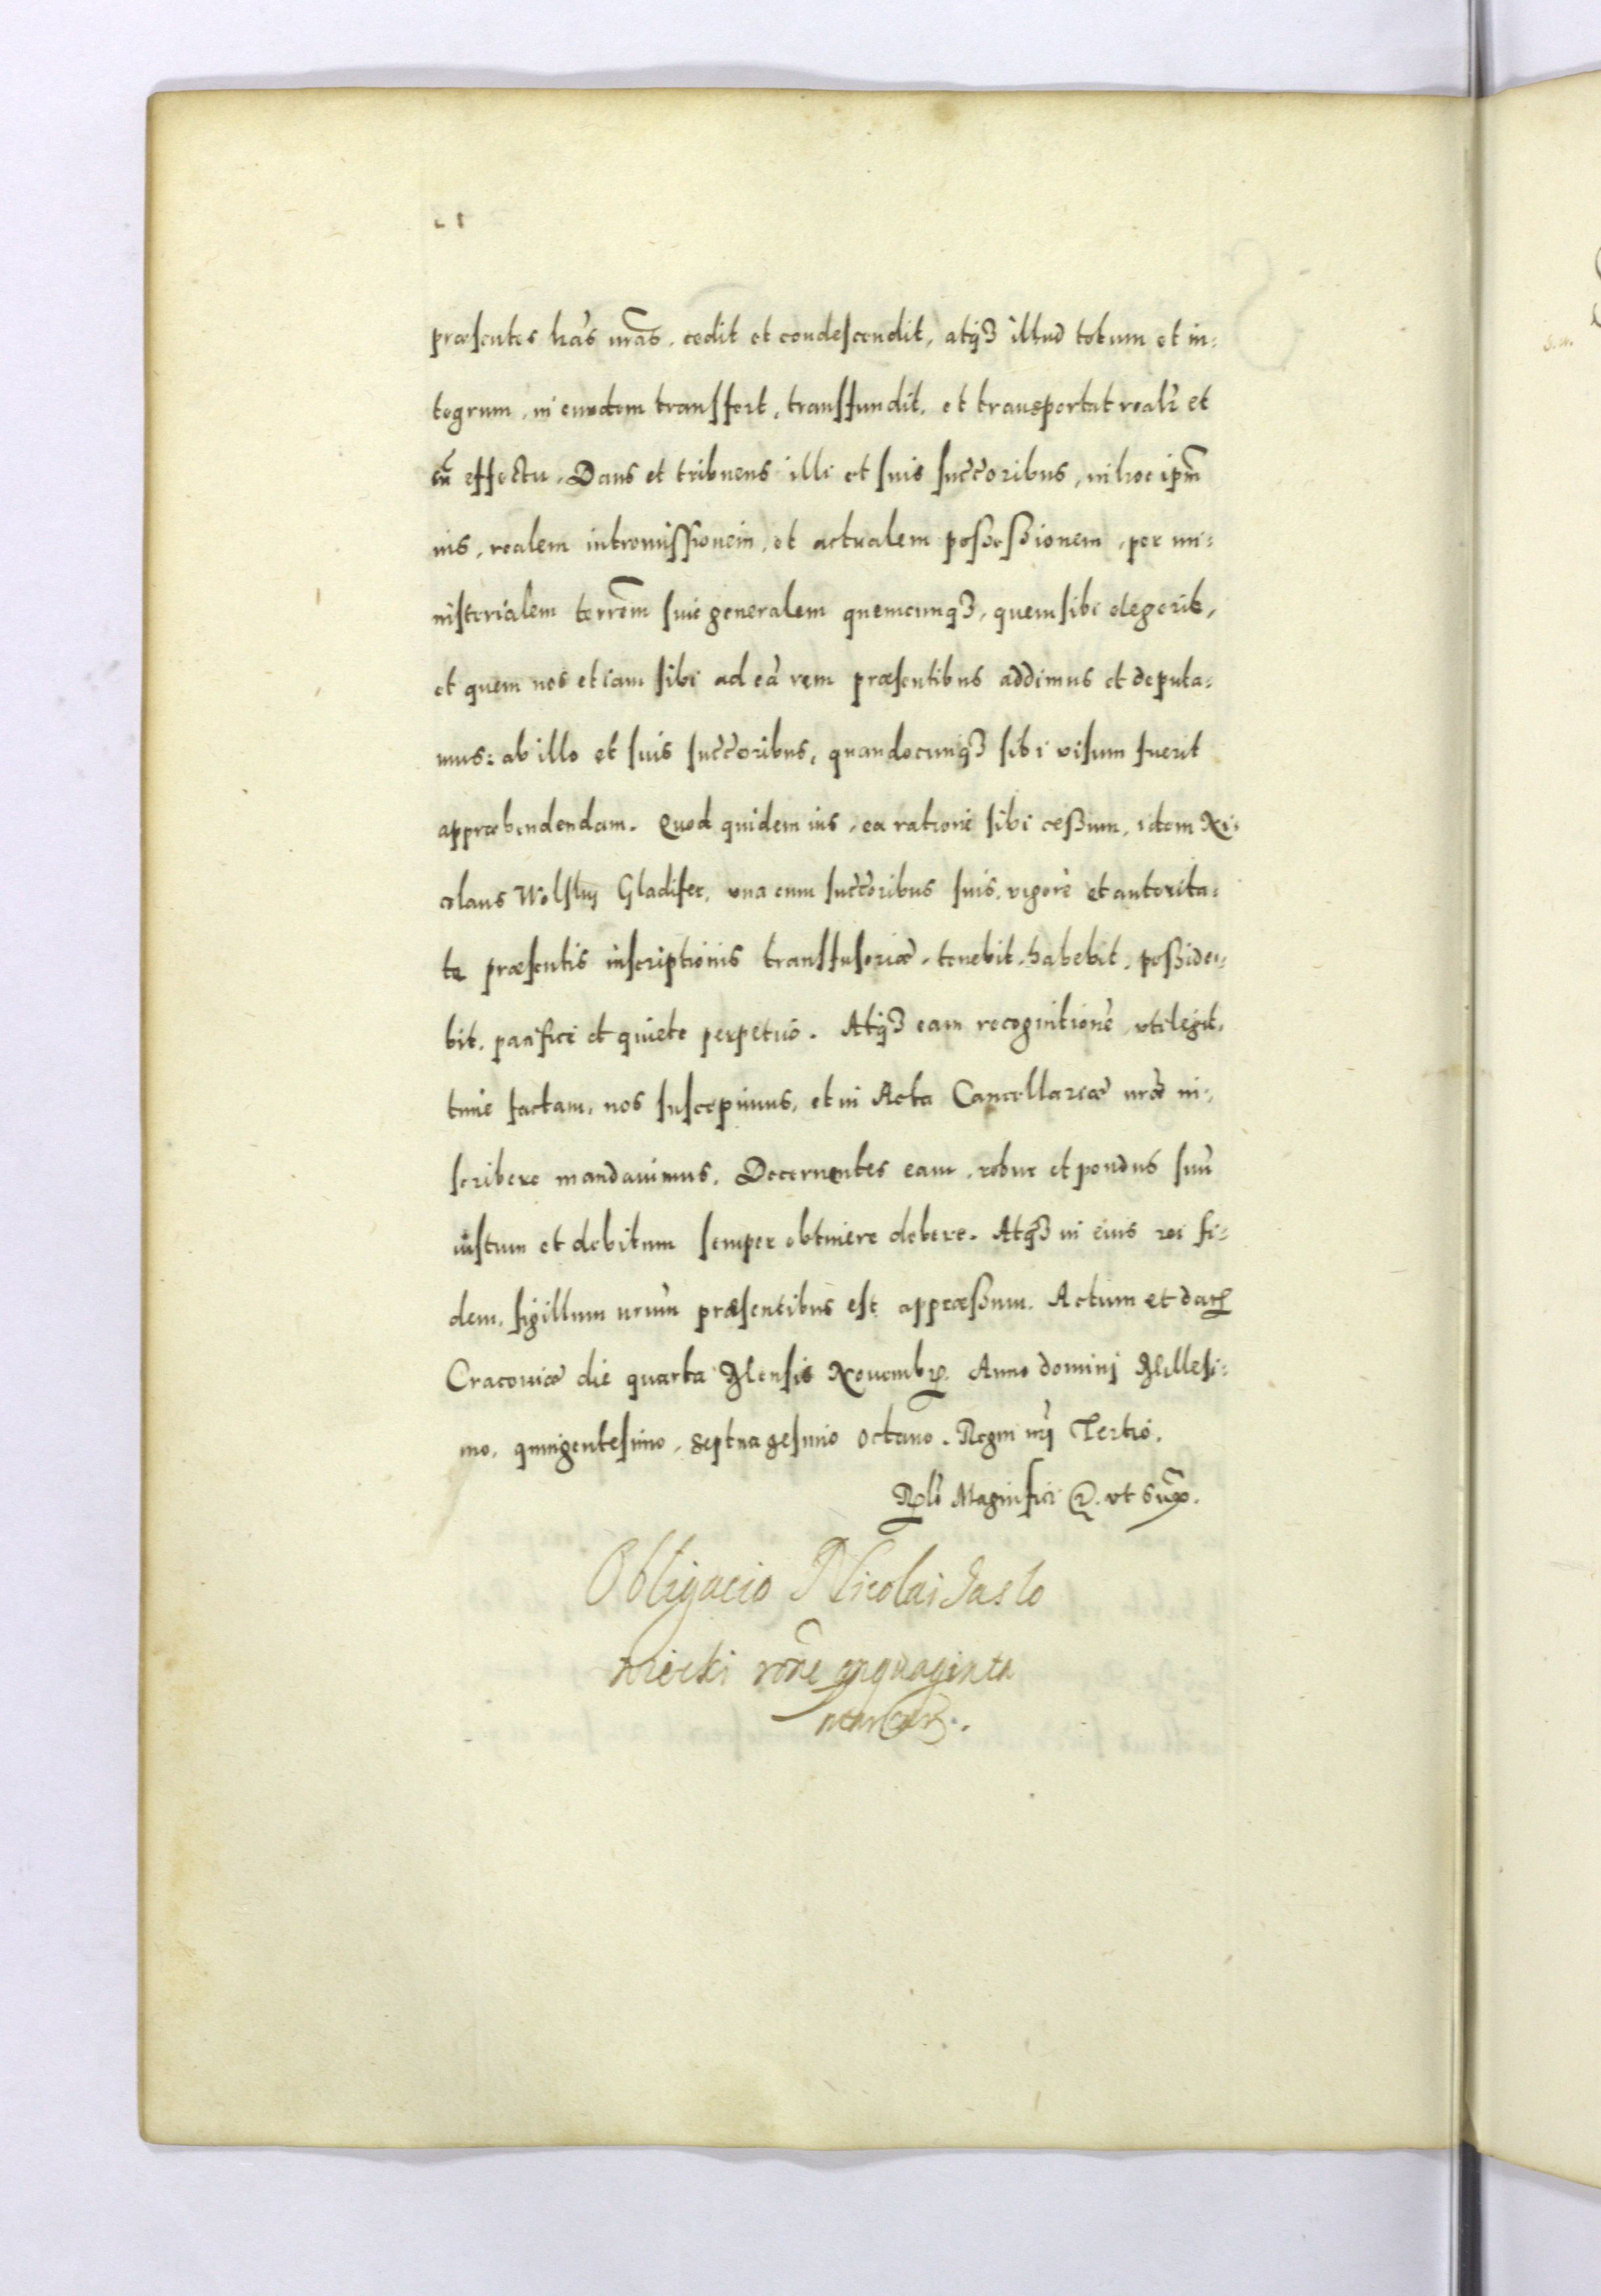 præsentes lrãs nrãs, cedit et condescendit, atq₃ illud totum et in-
tegrum, in eundem transfert, transfundit, et transportat realr et
cũ effectu. Dans et tribuens illi et suis succoribus, in hoc ipm
ius, realem intromissionem, et actualem possessionem, per mi-
nisterialem terrem siue generalem quemcunq₃, quem sibi elegerit,
et quem nos etiam sibi ad eã rem præsentibus addimus et deputa-
mus: ab illo et suis succoribus, quandocunq₃ sibi visum fuerit
appræhendendam. Quod quidem ius, ea ratione sibi cessum, idem Ni-
colaus Gladifer, vna cum succoribus suis, vigore et autorita-
te præsentis inscriptionis transfusoriæ, tenebit, habebit, posside-
bit, pacifice et quiete perpetuo. Atq₃ eam recognitionẽ, vti legit-
time factam, nos suscepimus, et in Acta Cancellariæ nræ in-
scribere mandauimus. Decernentes eam, robur et pondus suũ
iustum et debitum semper obtinere debere. Atq₃ in eius rei fi-
dem, sigillum nrum præsentibus est appræssum. Actum et dat
Cracouiæ die quarta Mensis Nouembr. Anno dominj Millesi-
mo, quingentesimo, septuagesimo octauo. Regni nrj Tertio.
Rlo Magnifici &. vt sup.
Obligacio Nicolai Jaslo
wiecki rõne qnquaginta
marcar.